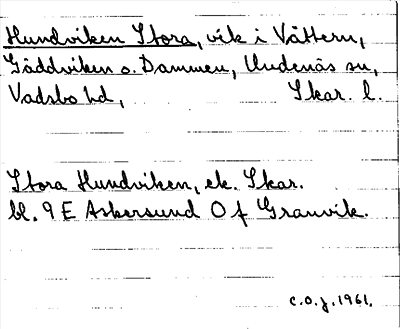 Hundviken Stora, vik i Vättern,
Gäddviken o. Dammen, Undenäs sn,
Vadsbo hd, Skar. l.
Stora Hundviken, ek. Skar.
bl. 9 E Askersund O f Granvik.
c.o.j. 1961.